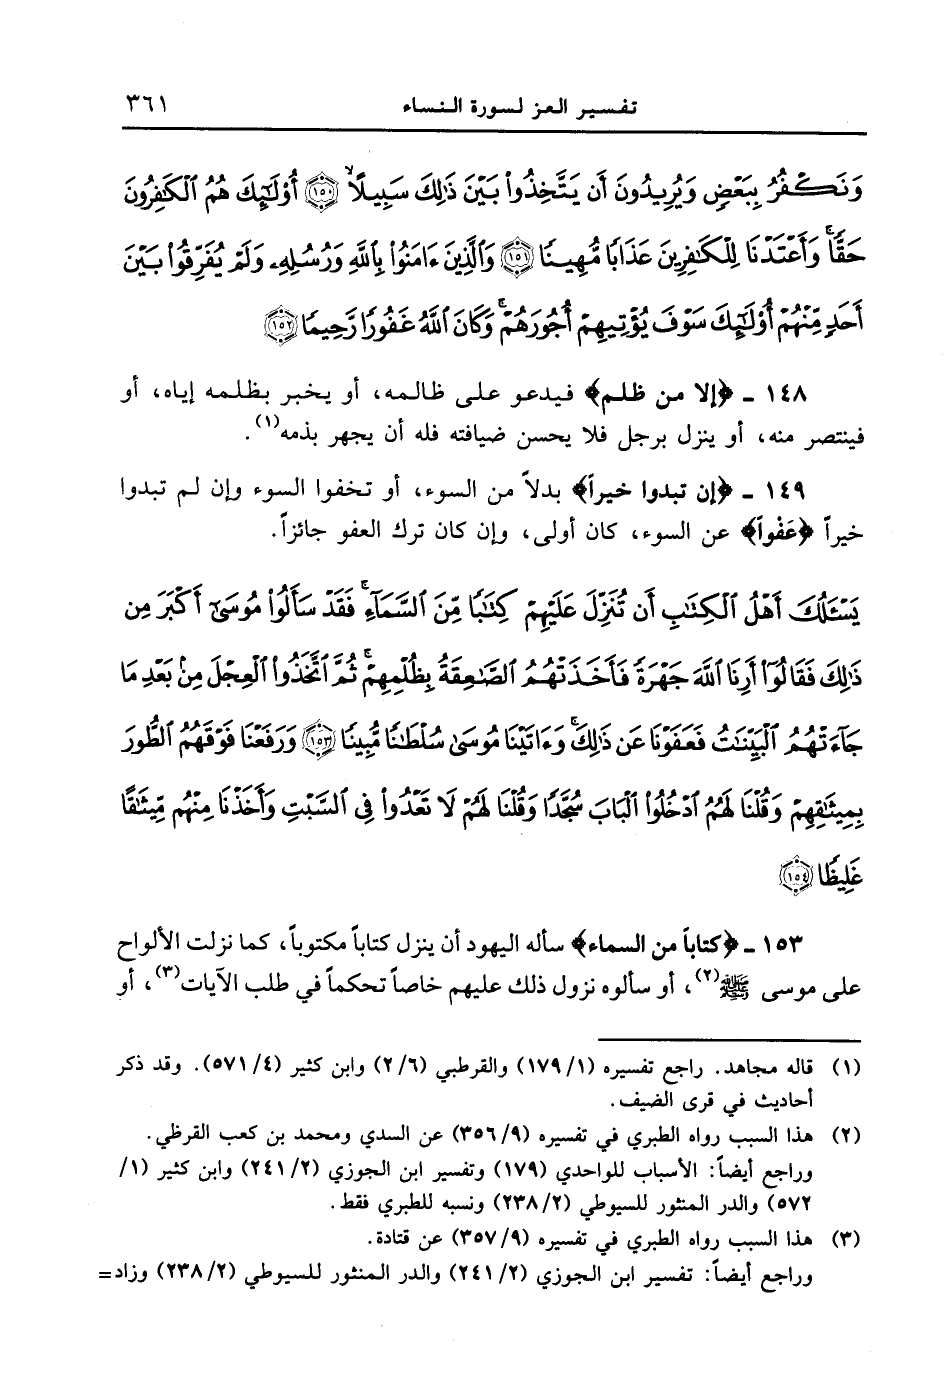 تفسير العز لسورة النساء ٣٦١
وَنَكْفُرُ بِبَعْضٍ وَيُرِيدُونَ أَن يَتَّخِذُوا۟ بَيْنَ ذَٰلِكَ سَبِيلًا ۙ ١٥٠ أُو۟لَٰٓئِكَ هُمُ ٱلْكَٰفِرُونَ
حَقًّا ۚ وَأَعْتَدْنَا لِلْكَٰفِرِينَ عَذَابًا مُّهِينًا ١٥١ وَٱلَّذِينَ ءَامَنُوا۟ بِٱللَّهِ وَرُسُلِهِۦ وَلَمْ يُفَرِّقُوا۟ بَيْنَ
أَحَدٍ مِّنْهُمْ أُو۟لَٰٓئِكَ سَوْفَ يُؤْتِيهِمْ أُجُورَهُمْ ۚ وَكَانَ ٱللَّهُ غَفُورًا رَّحِيمًا ١٥٢
١٤٨ - ﴿إلا من ظلم﴾ فيدعو على ظالمه، أو يخبر بظلمه إياه، أو
فينتصر منه، أو ينزل برجل فلا يحسن ضيافته فله أن يجهر بذمه(١).
١٤٩ - ﴿إن تبدوا خيراً﴾ بدلاً من السوء، أو تخفوا السوء وإن لم تبدوا
خيراً ﴿عَفْواً﴾ عن السوء، كان أولى، وإن كان ترك العفو جائزاً.
يَسْـَٔلُكَ أَهْلُ ٱلْكِتَٰبِ أَن تُنَزِّلَ عَلَيْهِمْ كِتَٰبًا مِّنَ ٱلسَّمَآءِ ۚ فَقَدْ سَأَلُوا۟ مُوسَىٰٓ أَكْبَرَ مِن
ذَٰلِكَ فَقَالُوٓا۟ أَرِنَا ٱللَّهَ جَهْرَةً فَأَخَذَتْهُمُ ٱلصَّٰعِقَةُ بِظُلْمِهِمْ ۚ ثُمَّ ٱتَّخَذُوا۟ ٱلْعِجْلَ مِنۢ بَعْدِ مَا
جَآءَتْهُمُ ٱلْبَيِّنَٰتُ فَعَفَوْنَا عَن ذَٰلِكَ ۚ وَءَاتَيْنَا مُوسَىٰ سُلْطَٰنًا مُّبِينًا ١٥٣ وَرَفَعْنَا فَوْقَهُمُ ٱلطُّورَ
بِمِيثَٰقِهِمْ وَقُلْنَا لَهُمُ ٱدْخُلُوا۟ ٱلْبَابَ سُجَّدًا وَقُلْنَا لَهُمْ لَا تَعْدُوا۟ فِى ٱلسَّبْتِ وَأَخَذْنَا مِنْهُم مِّيثَٰقًا
غَلِيظًا ١٥٤
١٥٣ - ﴿كتاباً من السماء﴾ سأله اليهود أن ينزل كتاباً مكتوباً، كما نزلت الألواح
على موسى ﷺ(٢)، أو سألوه نزول ذلك عليهم خاصاً تحكماً في طلب الآيات(٣)، أو
(١) قاله مجاهد. راجع تفسيره (١٧٩/١) والقرطبي (٢/٦) وابن كثير (٥٧١/٤). وقد ذكر
أحاديث في قرى الضيف.
(٢) هذا السبب رواه الطبري في تفسيره (٣٥٦/٩) عن السدي ومحمد بن كعب القرظي.
وراجع أيضاً: الأسباب للواحدي (١٧٩) وتفسير ابن الجوزي (٢٤١/٢) وابن كثير (١/
٥٧٢) والدر المنثور للسيوطي (٢٣٨/٢) ونسبه للطبري فقط.
(٣) هذا السبب رواه الطبري في تفسيره (٣٥٧/٩) عن قتادة.
وراجع أيضاً: تفسير ابن الجوزي (٢٤١/٢) والدر المنثور للسيوطي (٢٣٨/٢) وزاد=